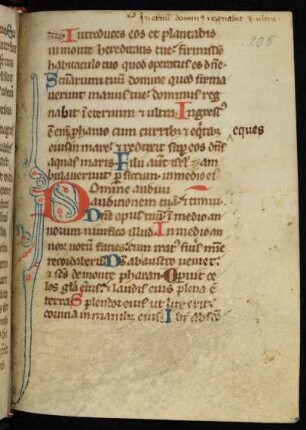 In eternū dominus regnabit & ultra
205
Introduces eos et plantabis
in monte hereditatis tue: firmissi
habitaculo tuo quod operatus es dñe
Sctuarium tuum domine quod firma
uerunt manus tue: dominus reg
nabit in eternum et ultra Ingressꝰ
ē eni pharao cum curribꝫ et eqtibꝫ
eques
eius in mare: et reduxit sup eos dñs
aquas maris Filii aut isrl am
bulauerunt p siccum in medio eiꝰ
Domine audiui
auditionem tuā: et timui
Dñe opus tuum: in medio an
norum uiuifica illud In medio an
norum notū facies: cum iratꝰ fuis mīe
recordaberis Ds ab austro ueniet:
et scs de monte pharan Opuit ce
los glā eius: et laudis eius plena ē
terra Splendor eius ut lux erit:
cornua in manibꝫ eius Ibi abscō